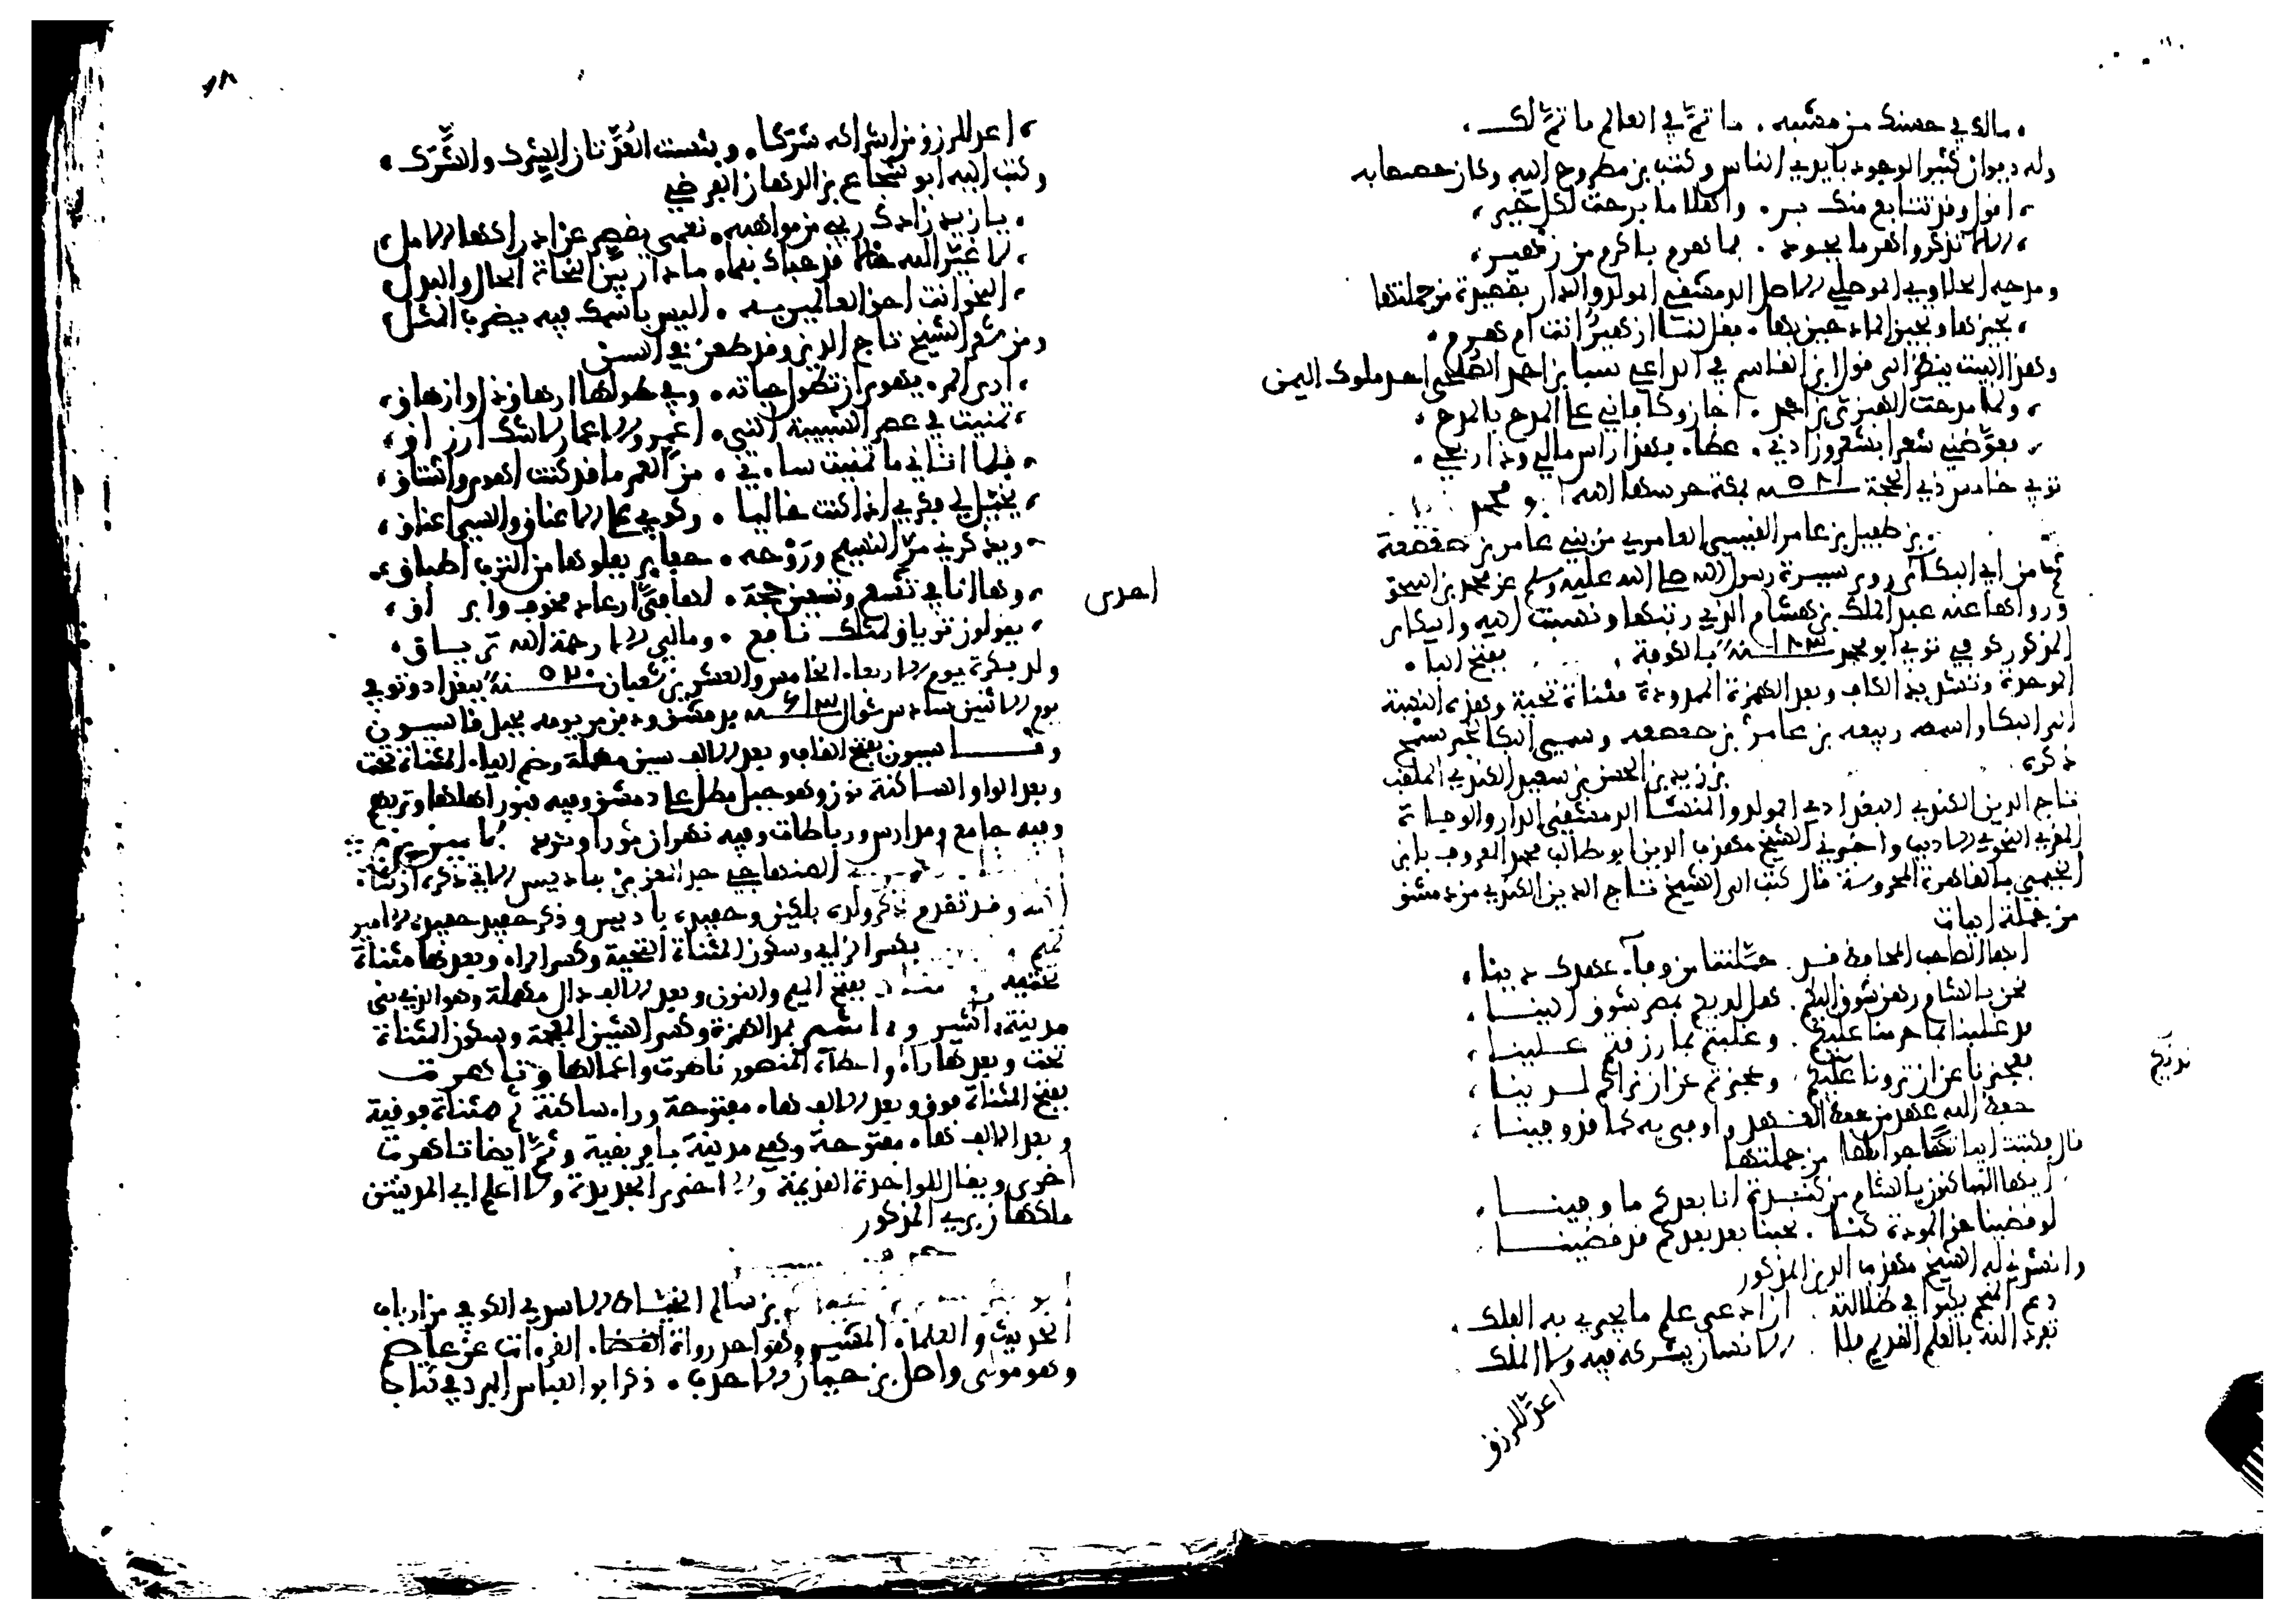 مالك في حسنك من مشبه . ما تمّ في العالم ما تمّ لك
وله ديوان كثير الوجود بايدي الناس وكتب بن مطروح اليه وكان
اقول وقد تتابع منك بر . واهلا ما برحت لكل خير
الا لا تذكروا هرما بجود . فما هرم باكرم من زهير
ومدحه الموصلي الاصل الدمشقي المولد والدار بقصيدة من جملتها
وهذا البيت ينظر الى قول ابن القاسم في الداعي سبا بن احمد الصليحي احد ملوك اليمن
ولما مدحت الهبرزي بن احمد . اجاز وكافاني على المدح بالمدح
فعوّضني شعرا بشعر وزادني . عطاء فهذا راس مالي وذا ربحي
توفي خامس ذي الحجة سنة بمكة حرسها الله ابو محمد
بن طفيل بن عامر القيسي العامري من بني عامر بن صعصعة
روى سيرة رسول الله صلى الله عليه وسلم عن محمد بن اسحق
ورواها عنه عبد الملك بن هشام الذي رتبها ونسبت اليه والبكاي
المذكور كوفي توفي ابو محمد سنة ١٨٣ بالكوفة بفتح الباء
الموحدة وتشديد الكاف وبعد الهمزة الممدودة مثناة تحتية وهذه النسبة
الى البكا واسمه ربيعة بن عامر بن صعصعة وسمي البكا لخبر يسمج
ذكره بن زيد بن الحسن بن سعيد الكندي الملقب
تاج الدين الكندي البغدادي المولد والمنشا الدمشقي الدار والوفاة
المقري النحوي الاديب واخبرني الشيخ مهذب الدين ابو طالب محمد المعروف بابن
الخيمي بالقاهرة المحروسة قال كتب الى الشيخ تاج الدين الكندي من دمشق
من جملة ابيات
ايها الصاحب المحافظ قد حمّلتنا من وفاء عهدك دينا
نحن بالشام رهن شوق اليكم . هل لديكم بمصر شوق الينا
قد غلبنا بما حرمنا عليكم . وغلبتم بما رزقتم علينا
فعجزنا عن ان ترونا عليكم . وعجزتم عن ان نراكم لدينا
حفظ الله عهد من حفظ العهد واوفى به كما قد وفينا
قال فكتبت جوابها ابياتا من جملتها
ايها الساكنون بالشام من كندة انا بعدكم ما وفينا
لو قضينا حق المودة كنا . نحبنا بعد بعدكم قد قضينا
وانشدني له الشيخ مهذب الدين المذكور
دع المنجم يكبوا في ضلالته . ان ادعى علم ما يجري به الفلك
تفرد الله بالعلم القديم فلا . الانسان يشركه فيه ولا الملك
اعدّ للرزق
لديكم
اعدّ للرزق من اشراكه شركا . وبئست العدّتان الشِّرك والشَّرَك
وكتب اليه ابو شجاع بن الدهان الفرضي
يا زيد زادك ربي من مواهبه . نعمى يقصر عن ادراكها الامل
لا غيّر الله حالا قد حباك بها . ما دار بين النحاة الحال والبدل
النحو انت احق العالمين به . اليس باسمك فيه يضرب المثل
ومن شعر الشيخ تاج الدين وقد طعن في السن
ارى المرء يهوى ان تطول حياته . وفي طولها ارهاق ذل وازهاق
تمنيت في عصر الشبيبة انني . اعمر والاعمار لا شك ارزاق
فلما اتاني ما تمنيت ساءني . من العمر ما قد كنت اهوى واشتاق
يخيل لي فكري اذا كنت خاليا . ركوبي على الاعناق والسير اعناق
ويذكرني مر النسيم وروحه . حفاير يعلوها من الترب اطباق
وها انا في تسع وتسعين حجة . لها فيّ ارعاد مخوف وابراق
يقولون ترياق لمثلك نافع . ومالي الا رحمة الله ترياق
احدى
ولد بكرة يوم الاربعاء الخامس والعشرين شعبان سنة ٥٢٠ ببغداد وتوفي
يوم الاثنين سادس شوال سنة ٦١٣ بدمشق ودفن من يومه بجبل قاسيون
وقاسيون بفتح القاف وبعد الالف سين مهملة وضم الياء المثناة تحت
وبعد الواو الساكنة نون وهو جبل مطل على دمشق وفيه قبور اهلها وتربهم
وفيه جامع ومدارس ورباطات وفيه نهران ثورا ويزيد
الصنهاجي جد المعز بن باديس الاتي ذكره ان شاء
الله وقد تقدم ذكر ولده بلكين وحفيده باديس وذكر حفيد حفيده الامير
تميم بكسر الزاي وسكون المثناة التحتية وكسر الراء وبعدها مثناة
تحتية مناد بفتح الميم والنون وبعد الالف دال مهملة وهو الذي بنى
مدينة اشير و اشير بمد الهمزة وكسر الشين المعجمة وسكون المثناة
تحت وبعدها راء واعطاه المنصور تاهرت واعمالها وتاهرت
بفتح المثناة فوق وبعد الالف هاء مفتوحة وراء ساكنة ثم مثناة فوقية
وبعد الالف هاء مفتوحة وهي مدينة بافريقية وثمّ ايضا تاهرت
اخرى ويقال للواحدة القديمة والاخرى الجديدة ولا اعلم اي المدينتين
ملكها زيري المذكور
ابو بن سالم الخياط الاسدي الكوفي من ارباب
الحديث والعلماء وهو احد رواة القراات عن عاصم
وهو مولى واصل بن حيان الاحدب . ذكر ابو العباس المبرد في كتاب